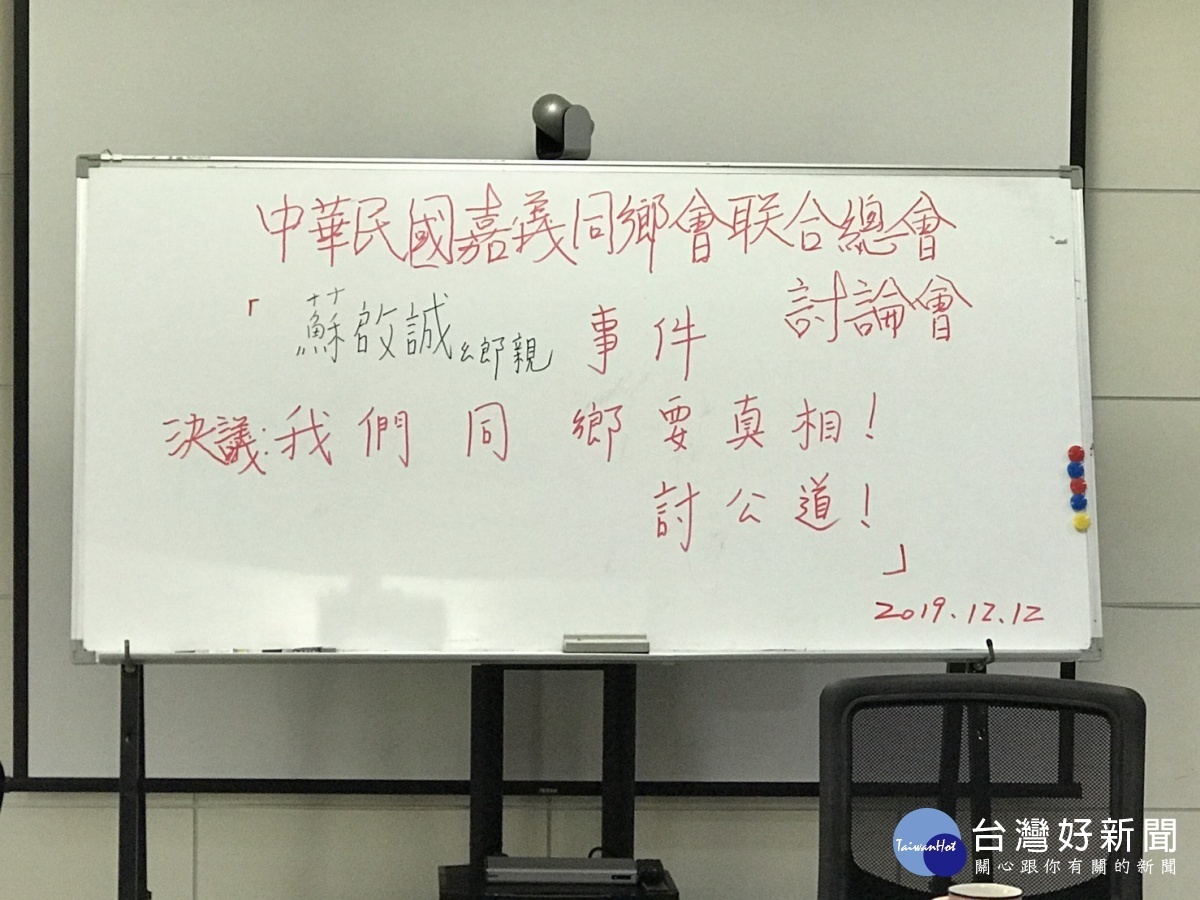 中華民國嘉義同鄉會联合總會
討論會
「蘇啟誠鄉親事件
決議:我們同鄉要真相!
討公道!
」
2019.12.12
TaiwanHot
台灣好新聞
關心跟你有關的新聞